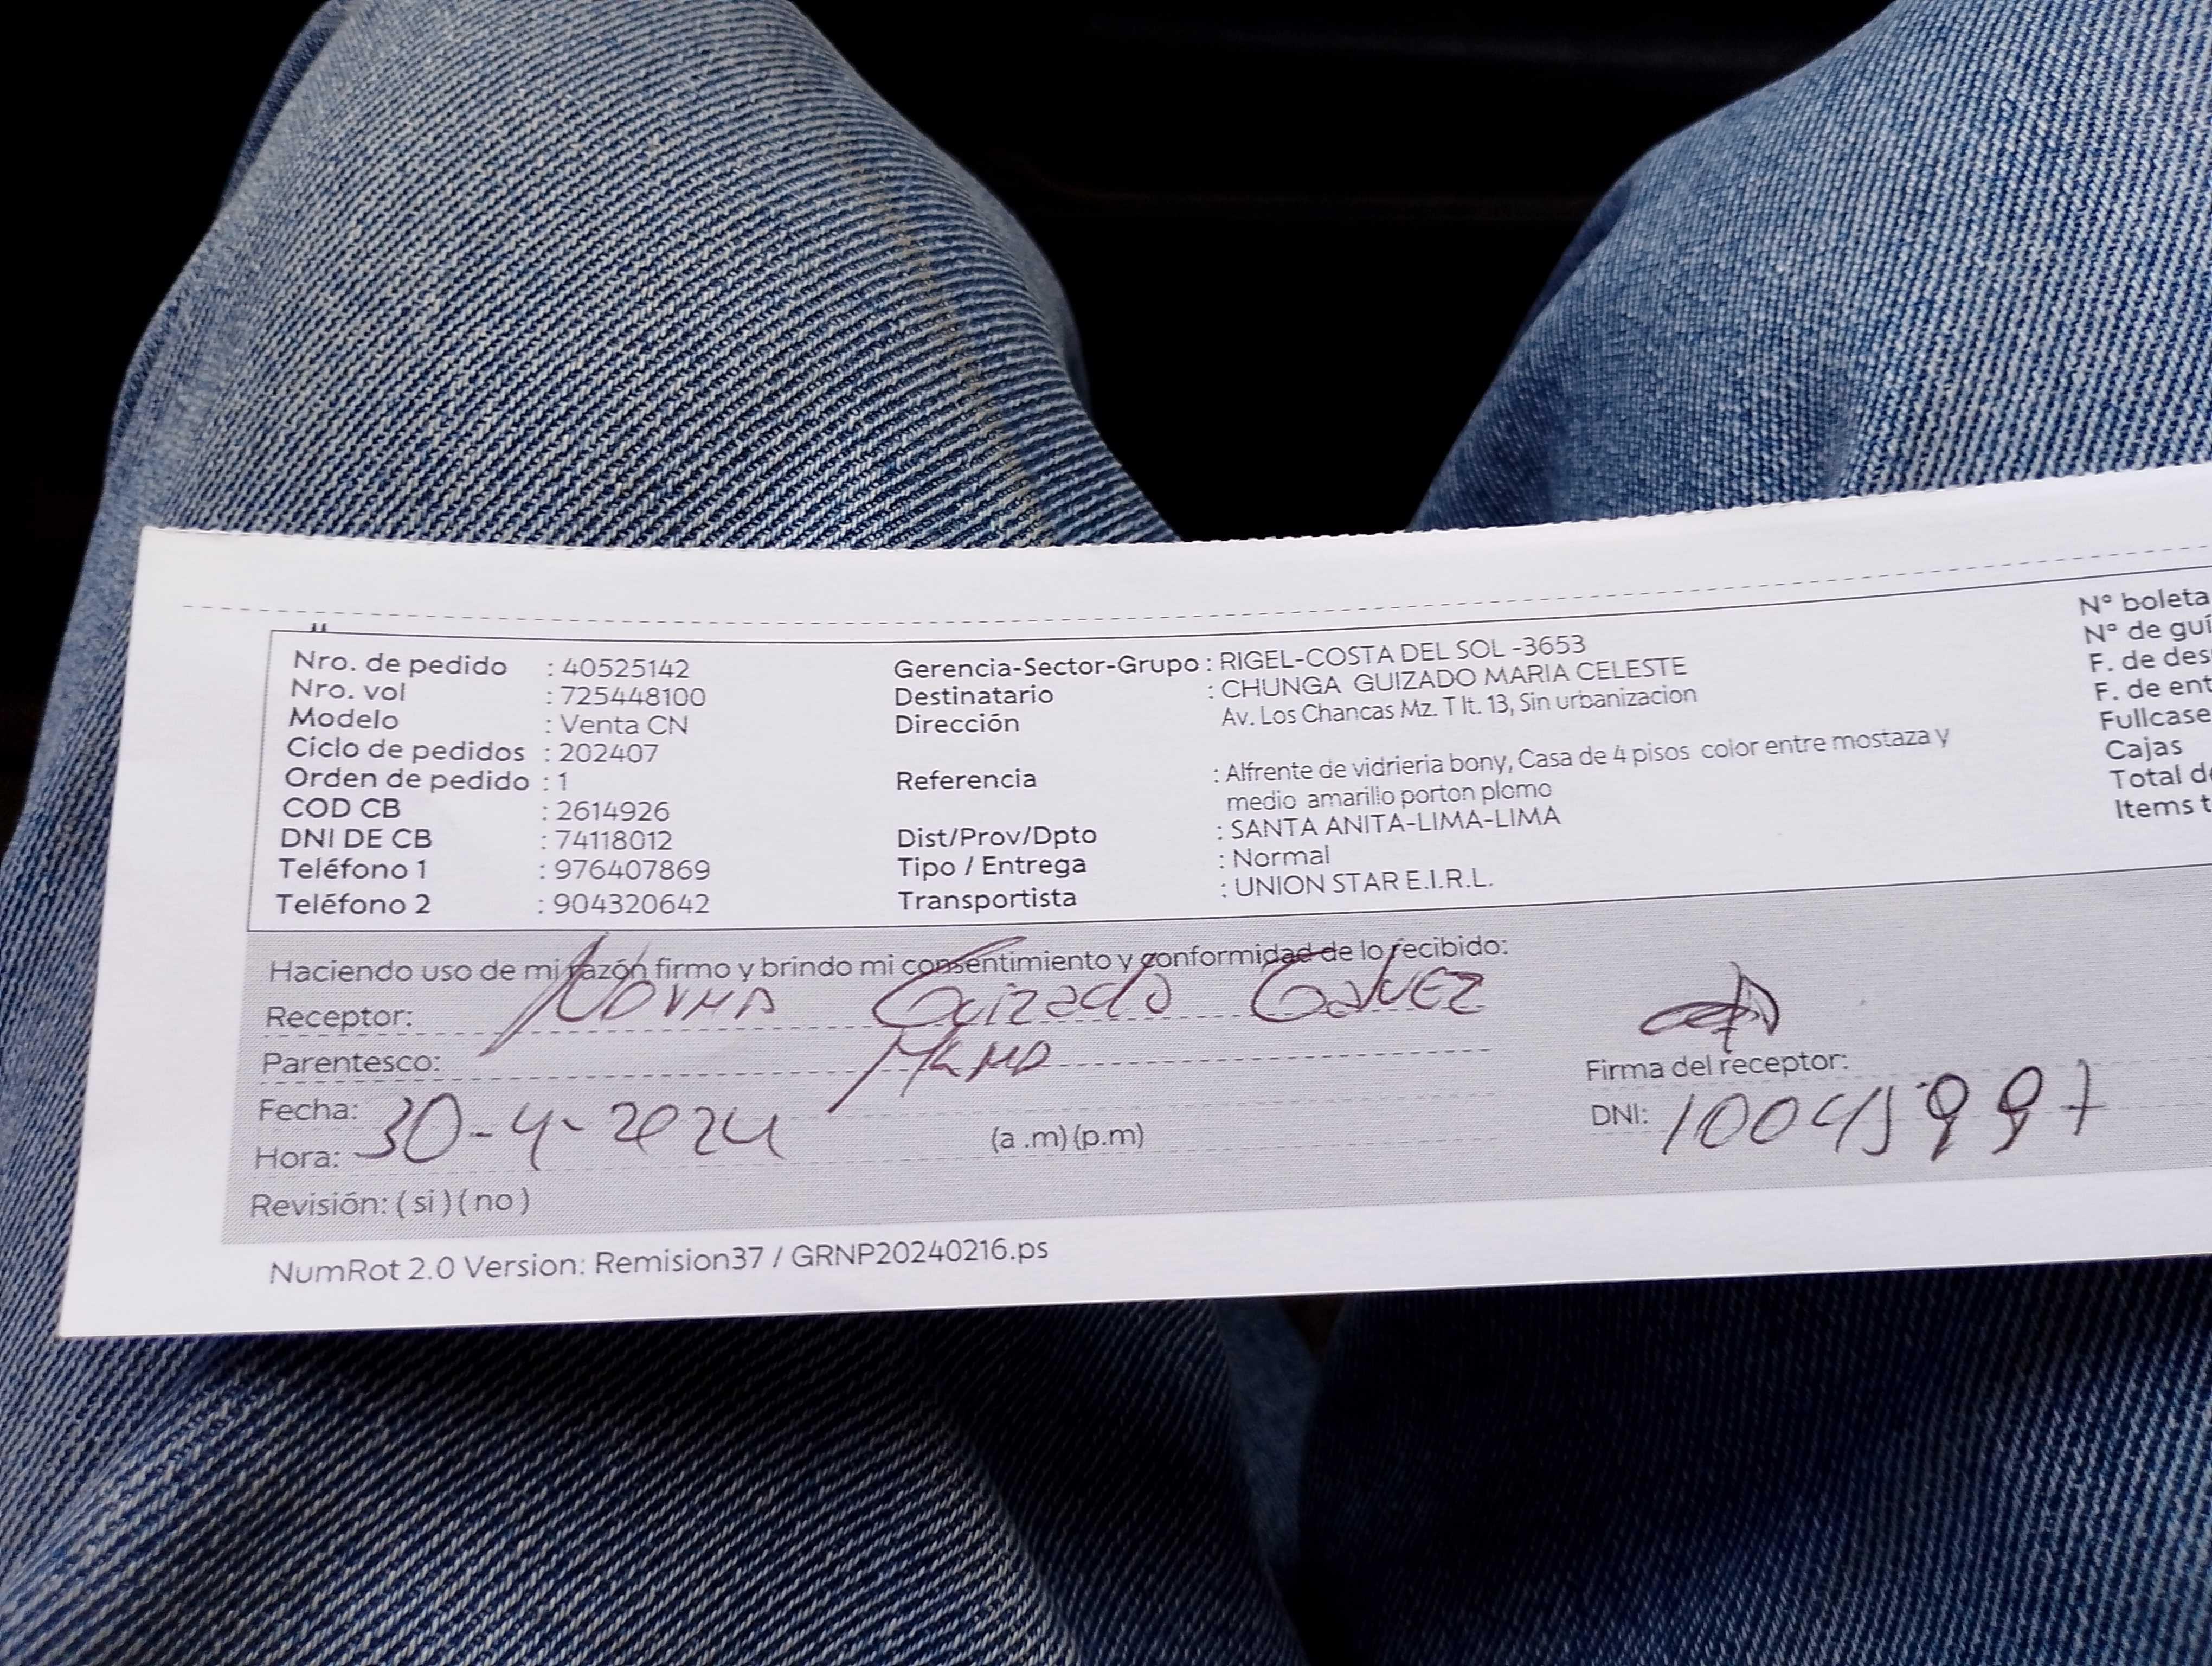 Nro. de pedido : 40525142
Nro. vol : 725448100
Modelo : Venta CN
Ciclo de pedidos : 202407
Orden de pedido : 1
COD CB : 2614926
DNI DE CB : 74118012
Teléfono 1 : 976407869
Teléfono 2 : 904320642
Gerencia-Sector-Grupo : RIGEL-COSTA DEL SOL -3653
Destinatario : CHUNGA GUIZADO MARIA CELESTE
Dirección Av. Los Chancas Mz. T lt. 13, Sin urbanizacion
Referencia : Alfrente de vidrieria bony, Casa de 4 pisos color entre mostaza y
medio amarillo porton plomo
Dist/Prov/Dpto : SANTA ANITA-LIMA-LIMA
Tipo / Entrega : Normal
Transportista : UNION STAR E.I.R.L.
N° boleta
N° de guí
F. de des
F. de ent
Fullcase
Cajas
Total de
Items t
Haciendo uso de mi razón firmo y brindo mi consentimiento y conformidad de lo recibido:
Receptor: Norma Guizado Galvez
Parentesco: Mamá
Fecha: 30-4-2024
Hora: (a .m) (p.m)
Revisión: ( si ) ( no )
Firma del receptor:
DNI:
NumRot 2.0 Version: Remision37 / GRNP20240216.ps